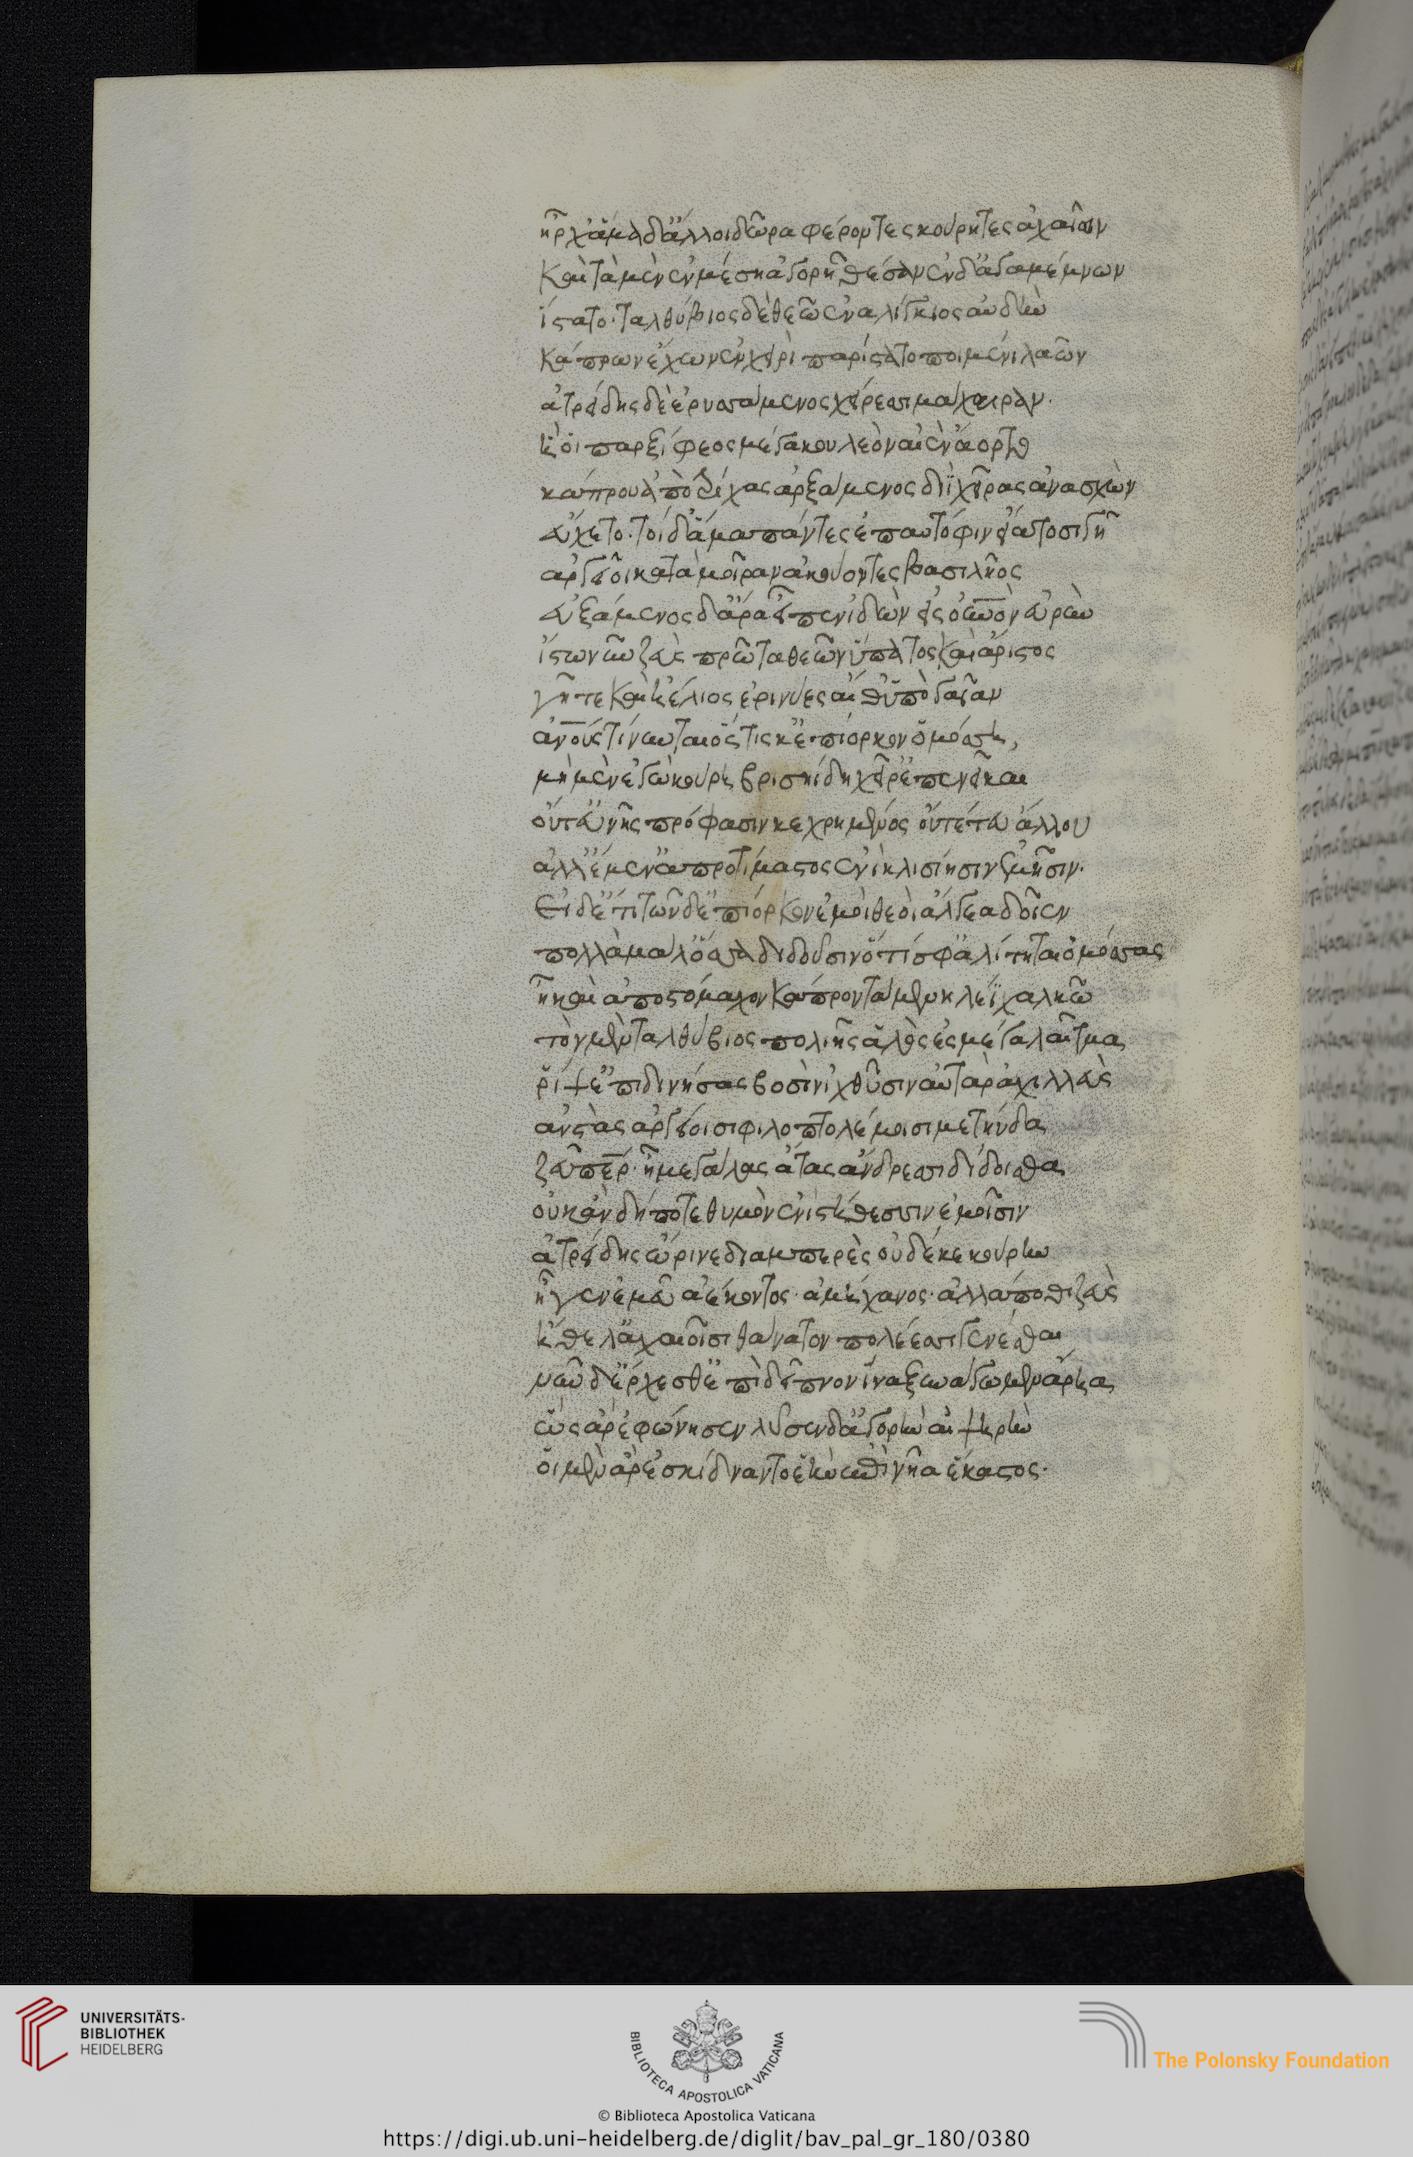 ἦρχ' ἅμα δ' ἄλλοι δῶρα φέροντες κούρητες ἀχαιῶν
καὶ τὰ μὲν ἐν μέσηι ἀγορῆι θέσαν ἐν δ' ἀγαμέμνων
ἵστατο· ταλθύβιος δὲ θεῶ ἐναλίγκιος αὐδὴν
κάπρων ἔχων ἐν χειρὶ παρίστατο ποιμένι λαῶν
ἀτρείδης δὲ ἐρυσσάμενος χείρεσσι μάχαιραν·
ἥ οἱ παρ ξίφεος μέγα κουλεὸν αἰὲν ἄορτο
κάπρου ἀπὸ τρίχας ἀρξάμενος διῒ χεῖρας ἀνασχὼν
εὔχετο· τοὶ δ' ἅμα πάντες ἐπ' αὐτόφιν εἵατο σιγῆ
ἀργεῖοι κατὰ μοῖραν ἀκούοντες βασιλῆος
εὐξάμενος δ' ἄρα εἶπεν ἰδὼν εἰς οὐρανὸν εὐρὺν
ἴστω νῦν ζεὺς πρῶτα θεῶν ὕπατος καὶ ἄριστος
γῆ τε καὶ ἠέλιος ἐρινύες αἵ θ' ὑπὸ γαῖαν
ἀνους τίνυνται ὅστις κ' ἐπίορκον ὀμόσση,
μὴ μὲν ἐγὼ κούρη βρισηίδη χεῖρ' ἐπενεῖκαι
οὔτ' εὐνῆς πρόφασιν κεχρημένος οὔτέ τευ ἄλλου
ἀλλ' ἔμεν' ἀπροτίμαστος ἐνὶ κλισίησιν ἐμῆσιν·
Εἰ δέ τι τῶνδ' ἐπίορκον ἐμοὶ θεοὶ ἄλγεα δοῖεν
πολλὰ μάλ' ὅσσα διδοῦσιν ὅτίς σφ' ἀλίτηται ὀμόσσας
ἦ καὶ ἀπὸ στόμαχον κάπρου τάμε νηλέϊ χαλκῶ
τὸν μὲν ταλθύβιος πολιῆς ἁλὸς ἐς μέγα λαῖτμα
ῥίψ' ἐπιδινήσας βόσιν ἰχθῦσιν αὐτὰρ ἀχιλλεὺς
ἀνστὰς ἀργείοισι φιλοπτολέμοισι μετηύδα
ζεῦ περ· ἦ μεγάλας ἄτας ἄνδρεσσι δίδοισθα
οὐκ ἂν δήποτε θυμὸν ἐνὶ στήθεσσιν ἐμοῖσιν
ἀτρείδης ὤρινε διαμπερὲς οὐδέ κε κούρην
ἦγεν ἐμεῦ ἀέκοντος· ἀμήχανος· ἀλλά ποθι ζεὺς
ἤθελ' ἀχαιοῖσι θάνατον πολέεσσι γενέσθαι
νῦν δ' ἔρχεσθ' ἐπὶ δεῖπνον ἵνα ξυνάγωμεν ἄρηα
ὣς ἄρ' ἐφώνησεν λῦσεν δ' ἀγορὴν αἰψηρὴν
οἱ μὲν ἄρ' ἐσκίδναντο ἑὴν ἐπὶ νῆα ἕκαστος·
UNIVERSITÄTS-
BIBLIOTHEK
HEIDELBERG
BIBLIOTECA APOSTOLICA VATICANA
The Polonsky Foundation
© Biblioteca Apostolica Vaticana
https://digi.ub.uni-heidelberg.de/diglit/bav_pal_gr_180/0380